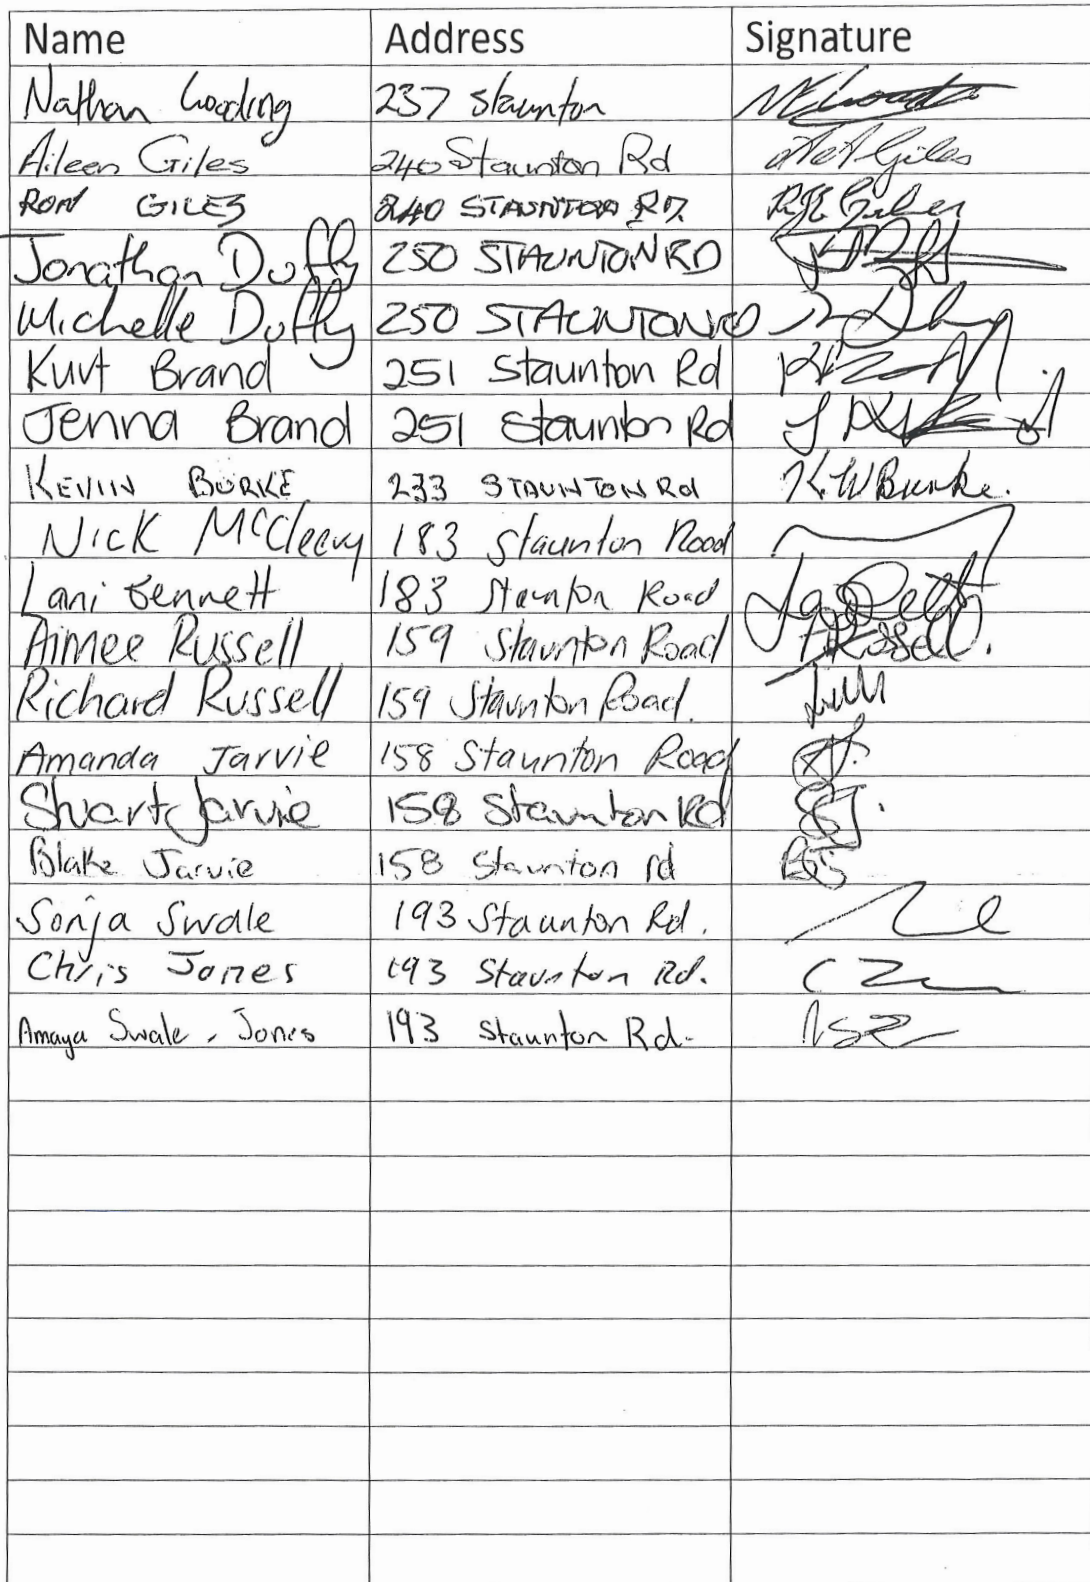 Name Address Signature
Nathan Gooding 237 Staunton
Aileen Giles 240 Staunton Rd Giles
RON GILES 240 STAUNTON RD.
Jonathan Duffy 250 STAUNTON RD
Michelle Duffy 250 STAUNTON RD
Kurt Brand 251 Staunton Rd
Jenna Brand 251 Staunton Rd
KEVIN BURKE 233 STAUNTON Rd K.W Burke.
Nick McCleery 183 Staunton Road
Lani Bennett 183 Staunton Road
Aimee Russell 159 Staunton Road ARussell.
Richard Russell 159 Staunton Road.
Amanda Jarvie 158 Staunton Road
Stuart Jarvie 158 Staunton Rd
Blake Jarvie 158 Staunton rd
Sonja Swale 193 Staunton Rd.
Chris Jones 193 Staunton Rd.
Amaya Swale - Jones 193 Staunton Rd.